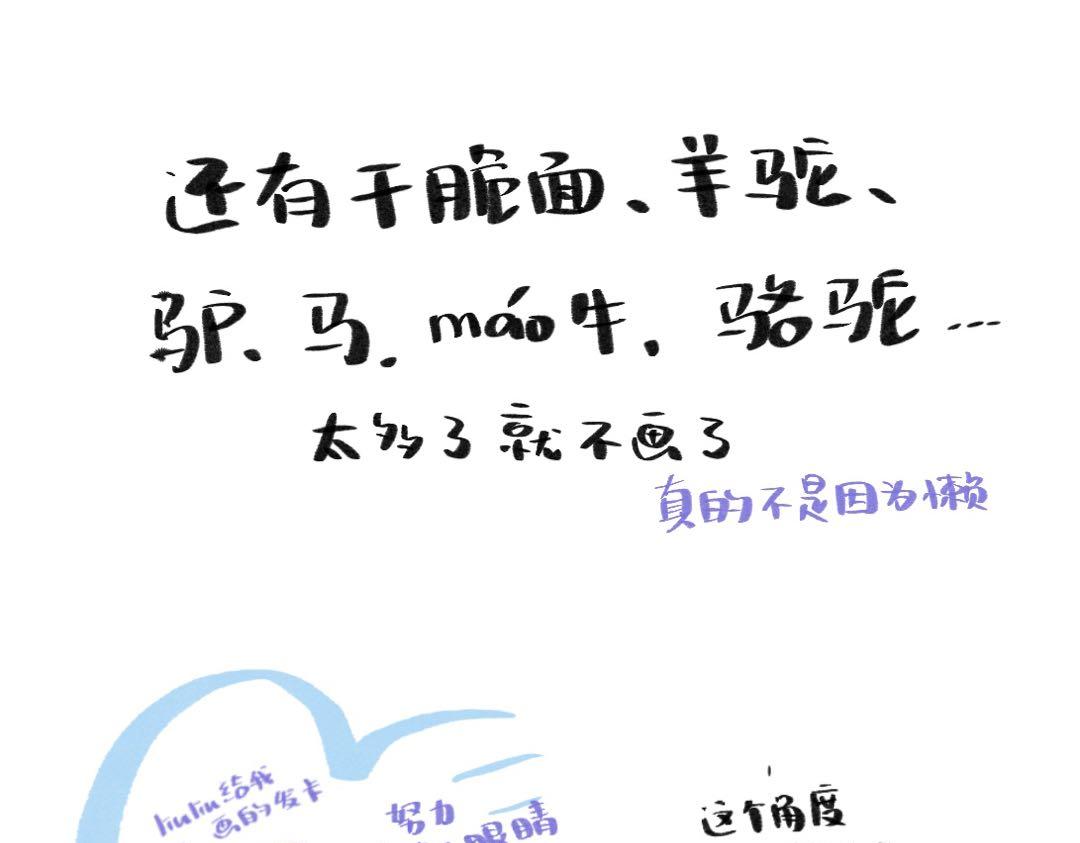 还有干脆面、羊驼、
驴、马、máo牛、骆驼...
太多了就不画了
真的不是因为懒
liuliu给我
画的发卡
努力
眼睛
这个角度